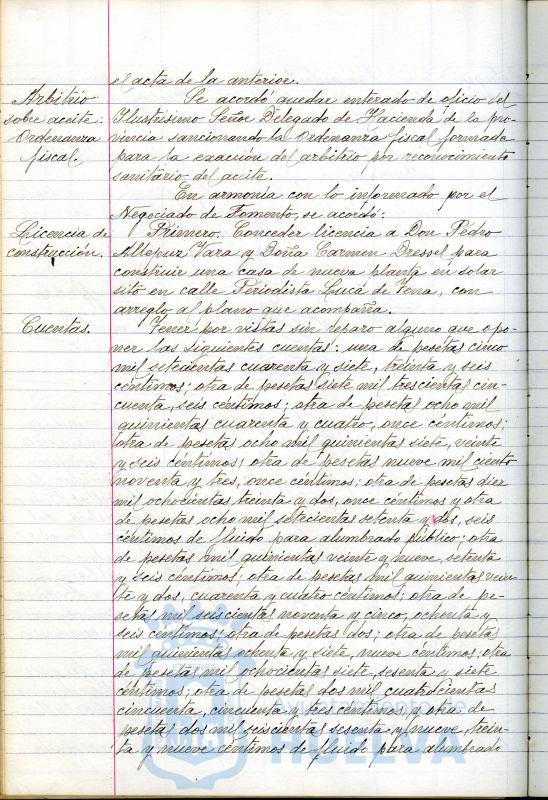 el acta de la anterior.
Arbitrio
sobre aceite:
Ordenanza
fiscal.
Se acordó quedar enterado de oficio del
Ilustrisimo Señor Delegado de Hacienda de la pro-
vincia sancionando la Ordenanza fiscal formada
para la exacción del arbitrio por reconocimiento
sanitario del aceite.
En armonía con lo informado por el
Negociado de Fomento, se acordó:
Licencia de
construcción.
Primero. Conceder licencia a Don Pedro
Vara y Doña Carmen Dressel para
construir una casa de nueva planta en solar
sito en calle Periodista Luca de Tena, con
arreglo al plano que acompaña.
Cuentas.
Tener por vistas sin reparo alguno que opo-
ner las siguientes cuentas: una de pesetas cinco
mil setecientas cuarenta y siete, treinta y seis
céntimos; otra de pesetas siete mil trescientas cin-
cuenta, seis céntimos; otra de pesetas ocho mil
quinientas cuarenta y cuatro, once céntimos;
otra de pesetas ocho mil quinientas siete, veinte
y seis céntimos; otra de pesetas nueve mil ciento
noventa y tres, once céntimos; otra de pesetas diez
mil ochocientas treinta y dos, once céntimos y otra
de pesetas ocho mil setecientas setenta y dos, seis
céntimos de fluido para alumbrado público; otra
de pesetas mil quinientas veinte y nueve, setenta
y seis céntimos; otra de pesetas mil quinientas vein-
te y dos, cuarenta y cuatro céntimos; otra de pe-
setas mil seiscientas noventa y cinco, ochenta y
seis céntimos; otra de pesetas dos; otra de pesetas
mil quinientas ochenta y siete, nueve céntimos; otra
de pesetas mil ochocientas siete, sesenta y siete
céntimos; otra de pesetas dos mil cuatrocientas
cincuenta, cincuenta y tres céntimos y otra de
pesetas dos mil seiscientas sesenta y nueve, trein-
ta y nueve céntimos de fluido para alumbrado
Ayuntamiento de
HUELVA